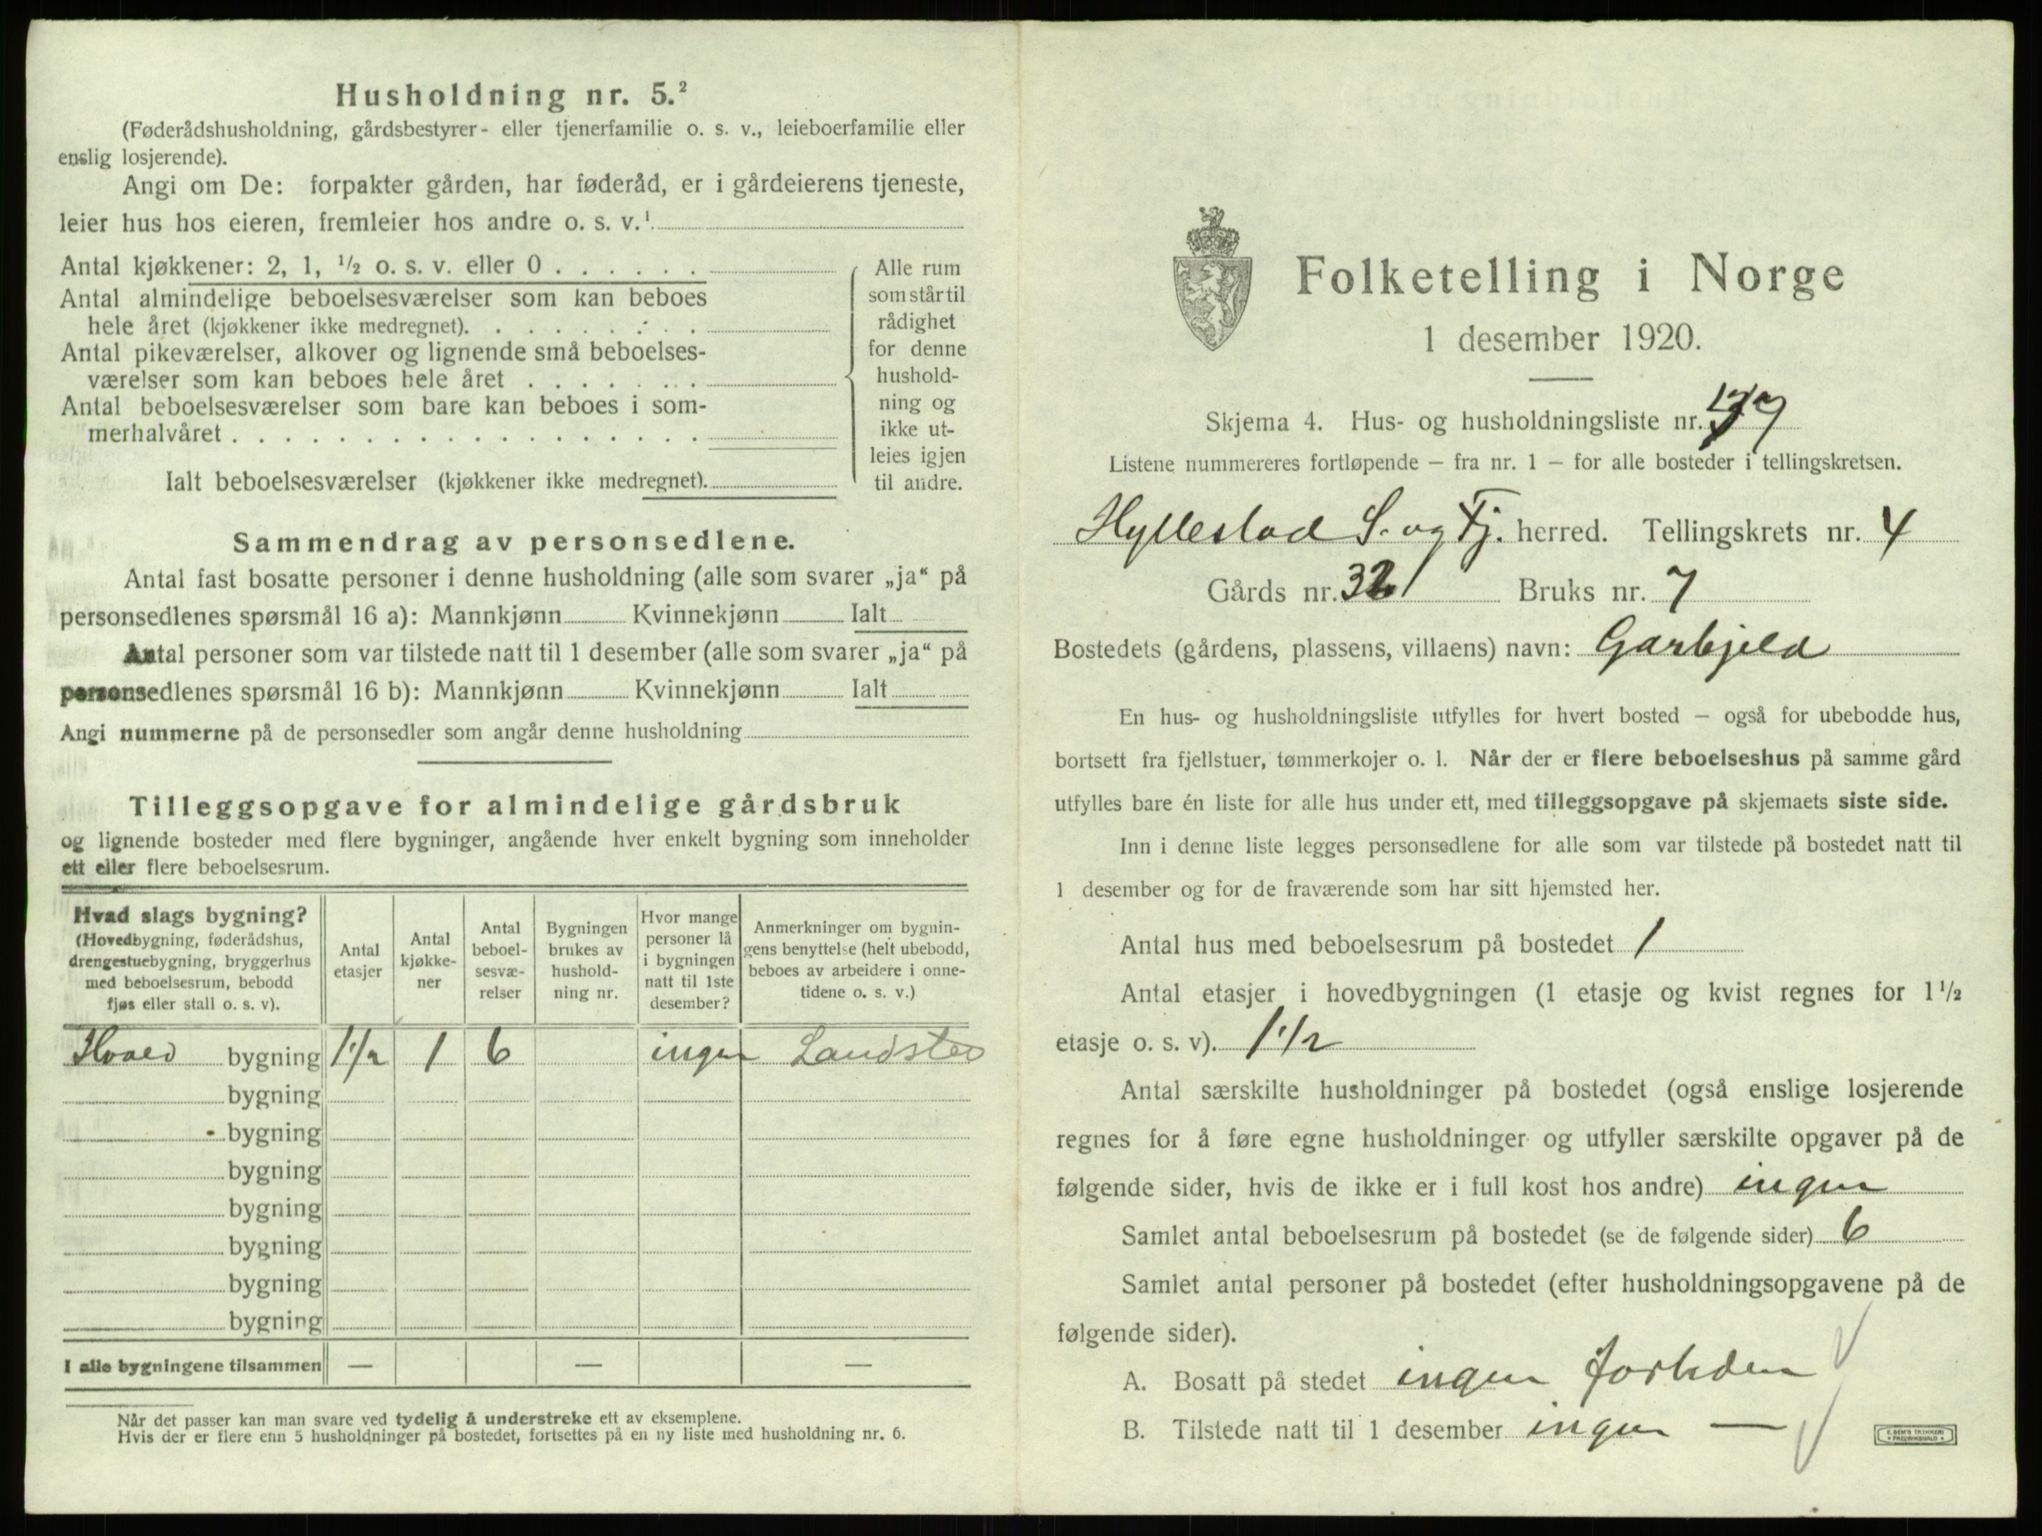 Husholdning nr. 5.²
(Føderådshusholdning, gårdsbestyrer- eller tjenerfamilie o. s. v., leieboerfamilie eller
enslig losjerende).
Angi om De: forpakter gården, har føderåd, er i gårdeierens tjeneste,
leier hus hos eieren, fremleier hos andre o. s. v.¹
Antal kjøkkener: 2, 1, ½ o. s. v. eller 0
Antal almindelige beboelsesværelser som kan beboes
hele året (kjøkkener ikke medregnet).
Antal pikeværelser, alkover og lignende små beboelses-
værelser som kan beboes hele året
Antal beboelsesværelser som bare kan beboes i som-
merhalvåret
Ialt beboelsesværelser (kjøkkener ikke medregnet).
Alle rum
som står til
rådighet
for denne
hushold-
ning og
ikke ut-
leies igjen
til andre.
Sammendrag av personsedlene.
Antal fast bosatte personer i denne husholdning (alle som svarer „ja“ på
personsedlenes spørsmål 16 a): Mannkjønn Kvinnekjønn Ialt
Antal personer som var tilstede natt til 1 desember (alle som svarer „ja“ på
personsedlenes spørsmål 16 b): Mannkjønn Kvinnekjønn Ialt
Angi nummerne på de personsedler som angår denne husholdning
Tilleggsopgave for almindelige gårdsbruk
og lignende bosteder med flere bygninger, angående hver enkelt bygning som inneholder
ett eller flere beboelsesrum.
Hvad slags bygning?
(Hovedbygning, føderådshus,
drengestuebygning, bryggerhus
med beboelsesrum, bebodd
fjøs eller stall o. s. v).
Antal
etasjer
Antal
kjøkke-
ner
Antal
beboel-
sesvæ-
relser
Bygningen
brukes av
hushold-
ning nr.
Hvor mange
personer lå
i bygningen
natt til 1ste
desember?
Anmerkninger om bygnin-
gens benyttelse (helt ubebodd,
beboes av arbeidere i onne-
tidene o. s. v.)
bygning 1½ 1 6 ingen Landsted
bygning
bygning
bygning
bygning
bygning
bygning
bygning
I alle bygningene tilsammen — — —
Når det passer kan man svare ved tydelig å understreke ett av eksemplene.
Hvis der er flere enn 5 husholdninger på bostedet, fortsettes på en ny liste med husholdning nr. 6.
Folketelling i Norge
1 desember 1920.
Skjema 4. Hus- og husholdningsliste nr.
Listene nummereres fortløpende – fra nr. 1 – for alle bosteder i tellingskretsen.
Hyllestad S. og Fj. herred. Tellingskrets nr. 4
Gårds nr. Bruks nr. 7
Bostedets (gårdens, plassens, villaens) navn:
En hus- og husholdningsliste utfylles for hvert bosted – også for ubebodde hus,
bortsett fra fjellstuer, tømmerkojer o. l. Når der er flere beboelseshus på samme gård
utfylles bare én liste for alle hus under ett, med tilleggsopgave på skjemaets siste side.
Inn i denne liste legges personsedlene for alle som var tilstede på bostedet natt til
1 desember og for de fraværende som har sitt hjemsted her.
Antal hus med beboelsesrum på bostedet 1
Antal etasjer i hovedbygningen (1 etasje og kvist regnes for 1½
etasje o. s. v). 1½
Antal særskilte husholdninger på bostedet (også enslige losjerende
regnes for å føre egne husholdninger og utfyller særskilte opgaver på de
følgende sider, hvis de ikke er i full kost hos andre) ingen
Samlet antal beboelsesrum på bostedet (se de følgende sider) 6
Samlet antal personer på bostedet (efter husholdningsopgavene på de
følgende sider).
A. Bosatt på stedet ingen
B. Tilstede natt til 1 desember ingen —